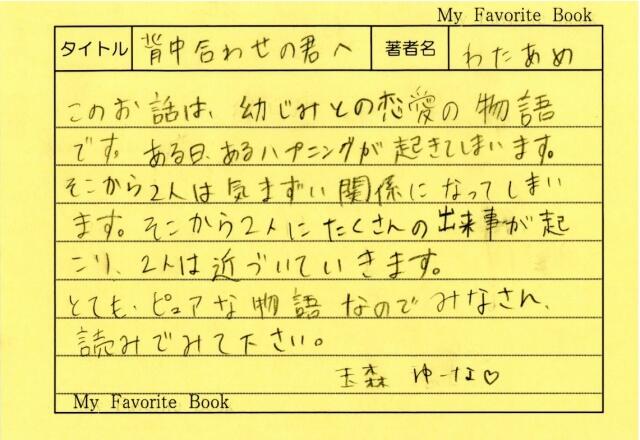 My Favorite Book
タイトル 背中合わせの君へ 著者名 わたあめ
このお話は、幼じみとの恋愛の物語
です。ある日、あるハプニングが起きてしまいます。
そこから2人は気まずい関係になってしまい
ます。そこから2人にたくさんの出来事が起
こり、2人は近づいていきます。
とても、ピュアな物語なのでみなさん、
読みでみて下さい。
玉森 ゆーな♡
My Favorite Book